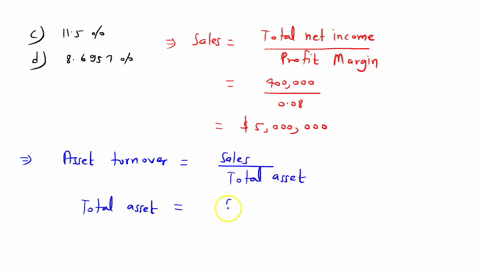 c) 11.5 %
d) 8.6957 %
⇒ Sales = Total net income / Profit Margin
= 400,000 / 0.08
= $5,000,000
⇒ Asset turnover = Sales / Total asset
Total asset =